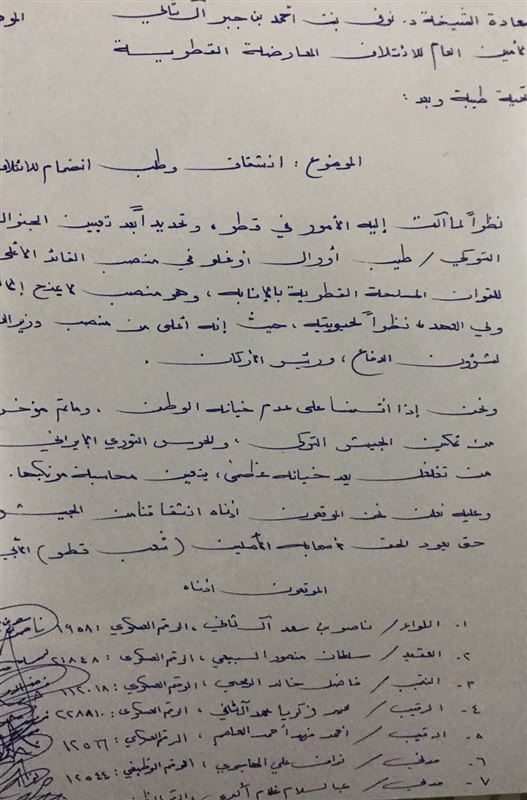 سعادة الشيخة د. نوف بنت أحمد بن جبر آل ثاني
الأمين العام للائتلاف المعارضة القطرية
تحية طيبة وبعد :
الموضوع : انشقاق وطلب انضمام للائتلاف
نظراً لما آلت إليه الأمور في قطر، وتحديداً بعد تعيين الجنرال
التركي / طيب أورال أوغلو في منصب القائد الأعلى
للقوات المسلحة القطرية بالإنابه، وهو منصب لا يمنح إلا
ولي العهد، نظراً لحيويته، حيث إنه أعلى من منصب وزير
لشؤون الدفاع، ورئيس الأركان.
ونحن إذا أقسمنا على عدم خيانه الوطن. وما تم مؤخراً
من تمكين الجيش التركي، وللحرس الثوري الإيراني
من تغلغل يعد خيانه عظمى، يتعين محاسبة مرتكبها.
وعليه نعلن نحن الموقعون أدناه انشقاقنا من الجيش
حتى يعود الحق لأصحابه الأصليين (شعب قطر)
الموقعون أدناه
١. اللواء / ناصر بن سعد آل ثاني، الرقم العسكري : ١٩٥٨
٢. العقيد / سلطان منصور السبيعي، الرقم العسكري : ٢١٨٤٨
٣. النقيب / فاضل خالد، الرقم العسكري : ١١٢٠١٨
٤. الرقيب / محمد زكريا حمد آل ثاني، الرقم العسكري : ٢٢٨٨١٠
٥. الرقيب / أحمد فهد أحمد، الرقم العسكري : ١٢٥٦٦
٦. مدني / نواف علي، الرقم الوظيفي : ١٢٥٤٤
٧. مدني / عبدالسلام غلام